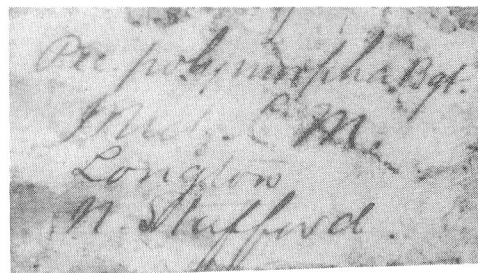 Pec polymorpha Bgt.
C. M.
Longton
N. Stafford.